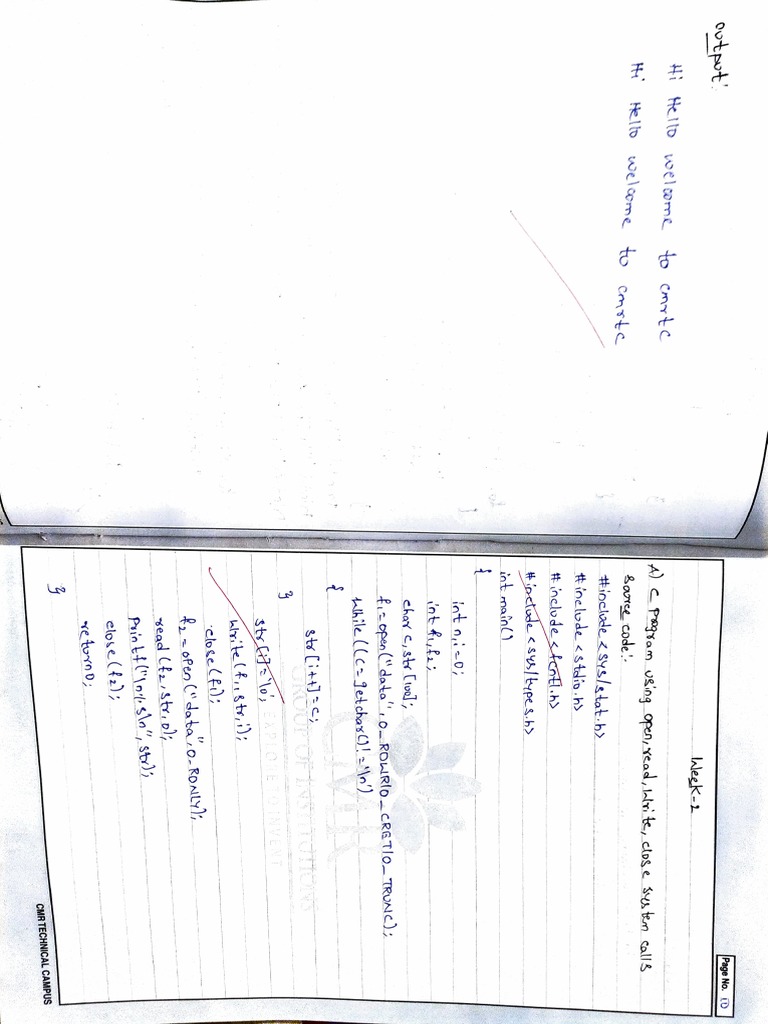 output:
Hi Hello welcome to cmrtc
Hi Hello welcome to cmrtc
Page No. 10
Week-2
A) C program using open, read, write, close system calls
Source code:
#include <sys/stat.h>
#include <stdio.h>
#include <fcntl.h>
#include <sys/types.h>
int main()
{
int n, i=0;
int f1, f2;
char c, str[100];
f1=open("data", O_RDWR|O_CREAT|O_TRUNC);
while((c=getchar()!='\n')
{
str[i++]=c;
}
str[i]='\0';
write(f1, str, i);
close(f1);
f2=open("data", O_RDONLY);
read(f2, str, 0);
printf("\n%s\n", str);
close(f2);
return 0;
}
CMR
GROUP OF INSTITUTIONS
EXPLORE TO INVENT
CMR TECHNICAL CAMPUS